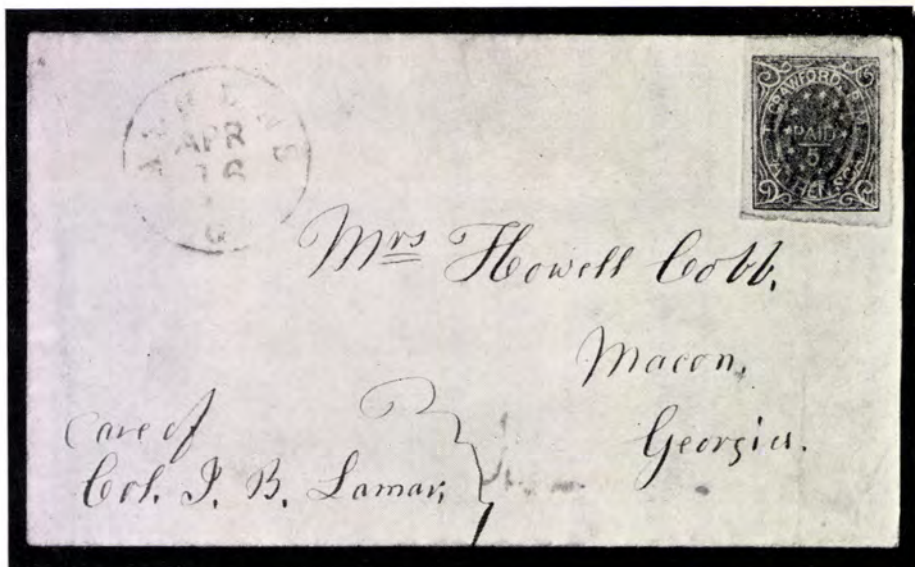 APR
T. CRAWFORD. P.M.
PAID
5
ATHENS. GA
Mrs Howell Cobb.
Macon,
Georgia.
Care of
Col. J. B. Lamar,